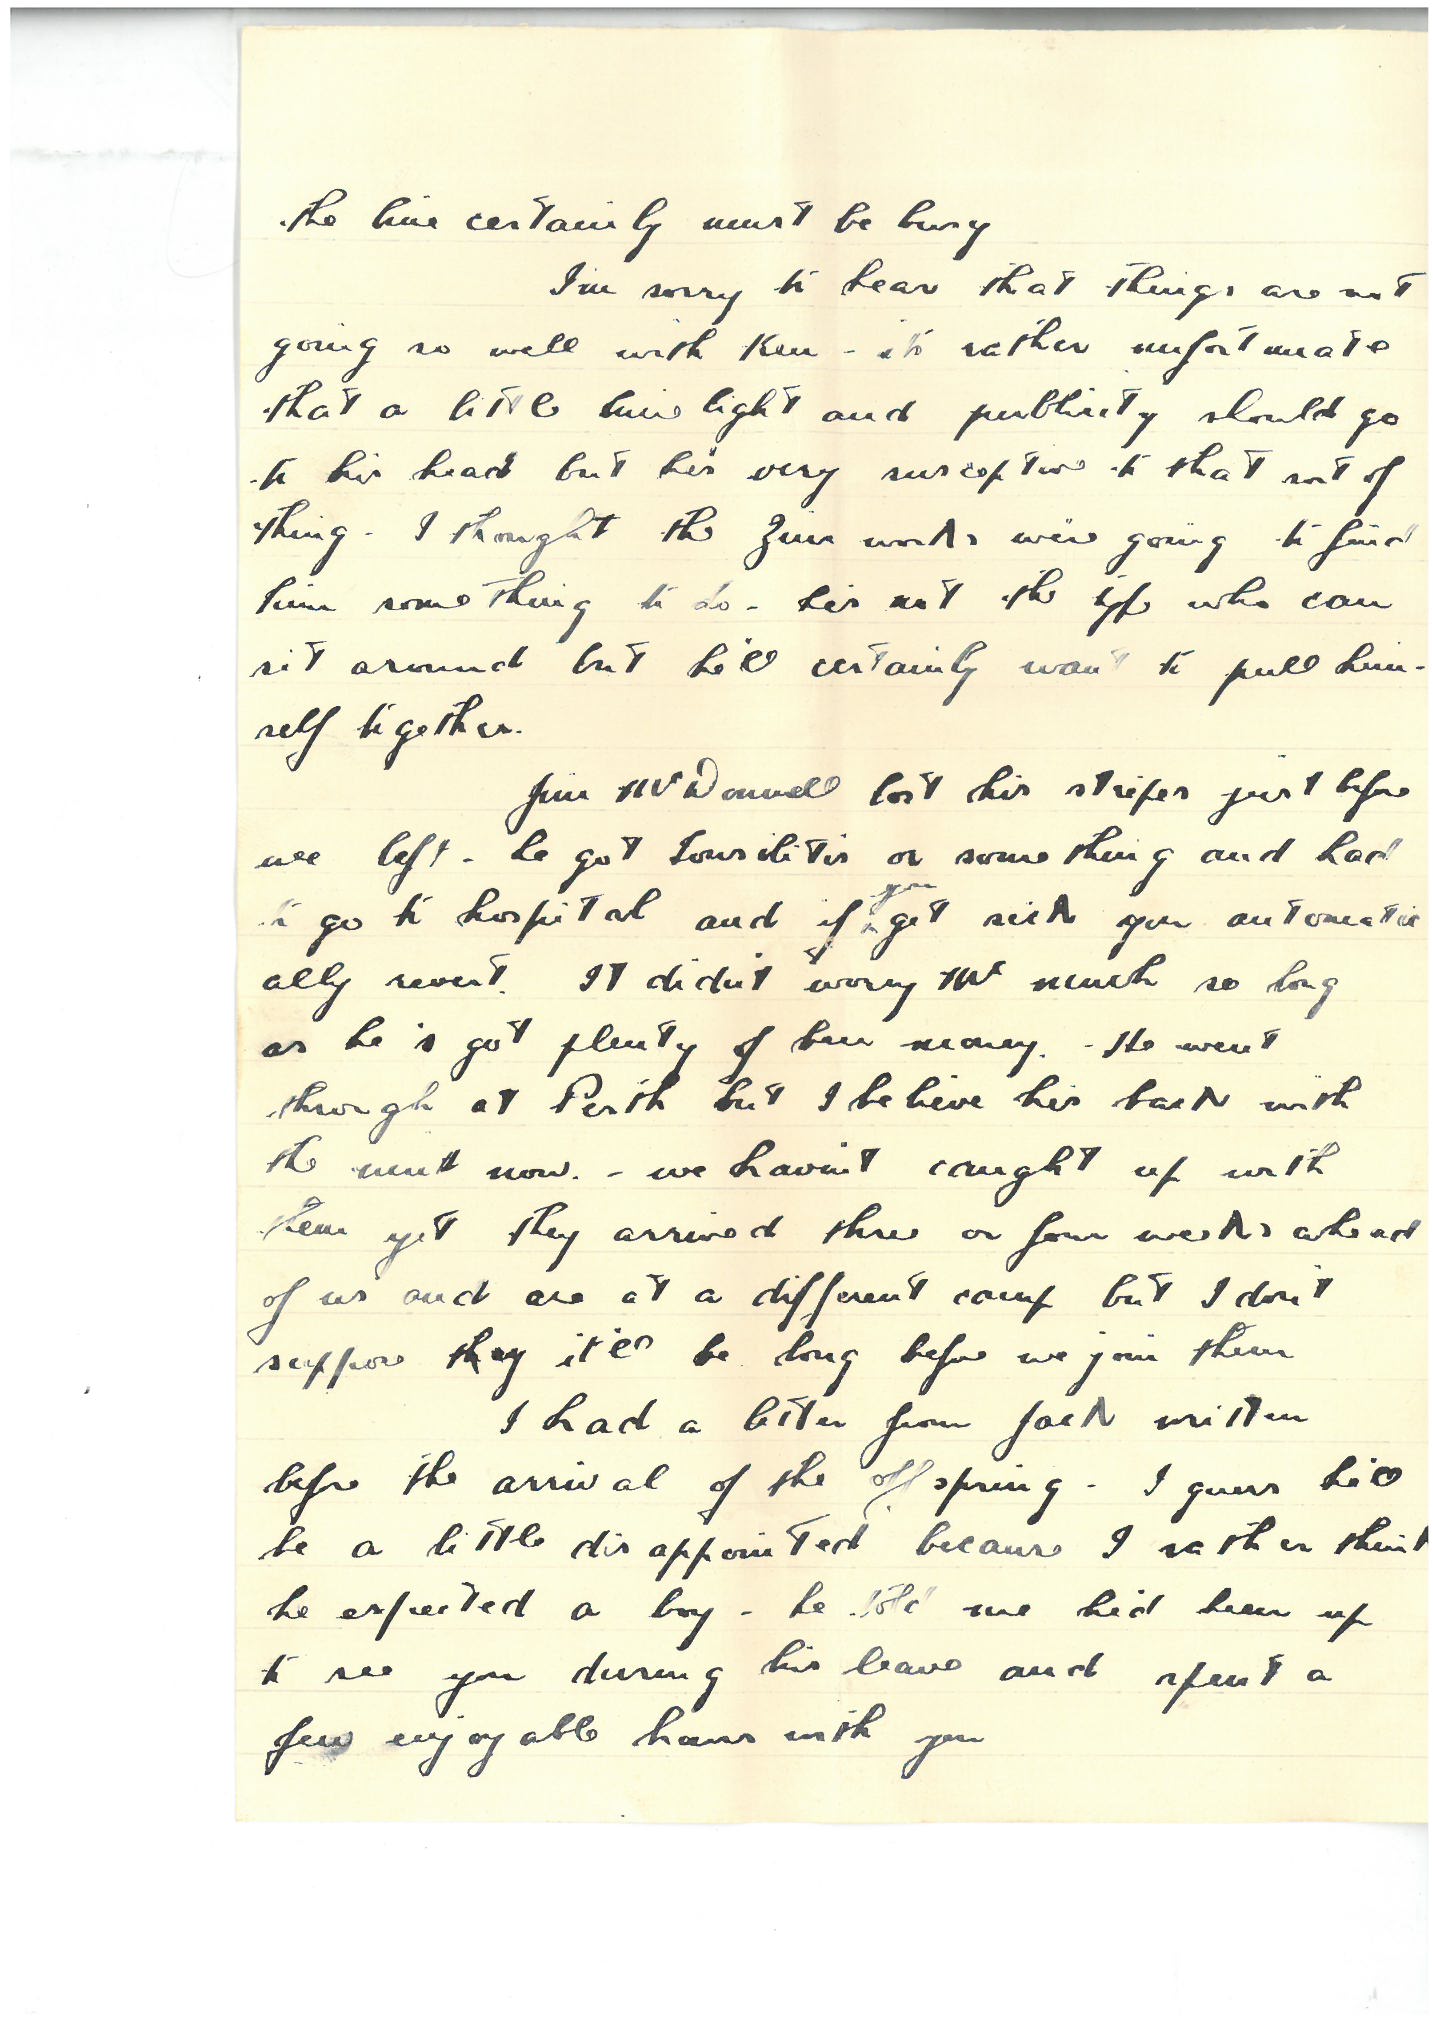 the line certainly must be busy
I'm sorry to hear that things are not
going so well with Ken - it's rather unfortunate
that a little lime light and publicity should go
to his head but he's very susceptive to that sort of
thing - I thought the Zinc works were going to find
him something to do - he's not the type who can
sit around but he'll certainly want to pull him-
self together.
Jim McDonnell lost his stripes just before
we left - he got tonsilitis or something and had
to go to hospital and if you get sick you automatic
ally revert. It didn't worry Mc much so long
as he's got plenty of beer money. - He went
through at Perth but I believe he's back with
the unit now. - we haven't caught up with
them yet they arrived three or four weeks ahead
of us and are at a different camp but I don't
suppose they it'll be long before we join them
I had a letter from Jack written
before the arrival of the offspring - I guess he'll
be a little disappointed because I rather think
he expected a boy - he told me he'd been up
to see you during his leave and spent a
few enjoyable hours with you